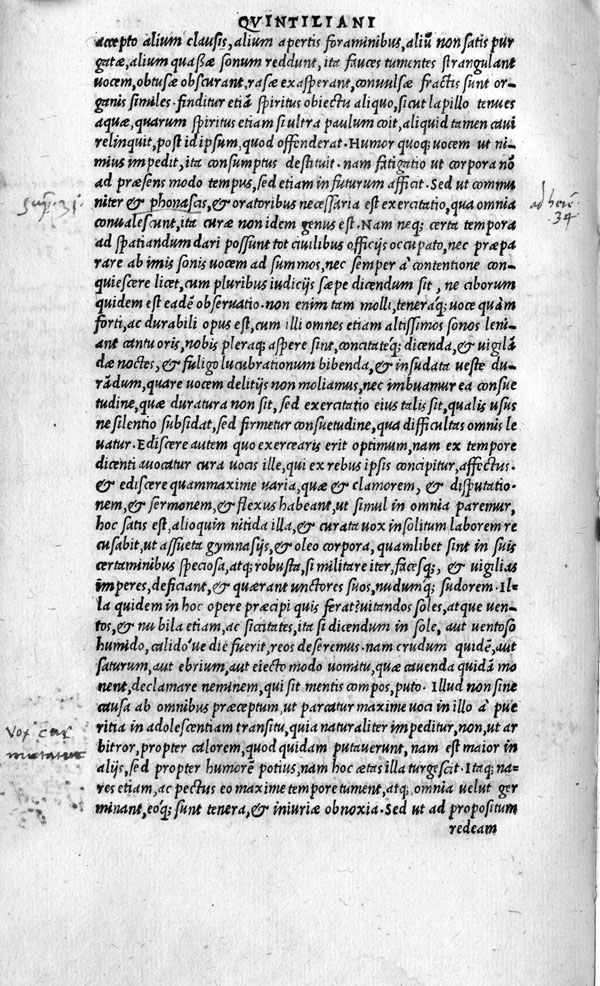 QVINTILIANI
accepto alium clausis, alium apertis foraminibus, aliũ non satis pur
gatæ, alium quassæ sonum reddunt, ita fauces tumentes strangulant
uocem, obtusæ obscurant, rasæ exasperant, conuulsæ fractis sunt or-
ganis similes. finditur etiã spiritus obiectu aliquo, sicut lapillo tenues
aquæ, quarum spiritus etiam si ultra paulum coit, aliquid tamen caui
relinquit, post id ipsum, quod offenderat. Humor quoq; uocem ut ni-
mius impedit, ita consumptus destituit. nam fatigatio ut corpora nõ
ad præsens modo tempus, sed etiam in futurum afficit. Sed ut commu
niter & phonascis, & oratoribus necessaria est exercitatio, qua omnia
conualescunt, ita curæ non idem genus est. Nam neq; certa tempora
ad spatiandum dari possunt tot ciuilibus officijs occupato, nec præpa
rare ab imis sonis uocem ad summos, nec semper à contentione con-
quiescere licet, cum pluribus iudicijs sæpe dicendum sit, ne ciborum
quidem est eadẽ obseruatio. non enim tam molli, teneraq; uoce quàm
forti, ac durabili opus est, cum illi omnes etiam altissimos sonos leni-
ant cantu oris, nobis pleraq; aspere sint, concitateq; dicenda, & uigilã
dæ noctes, & fuligo lucubrationum bibenda, & insudata ueste du-
rãdum, quare uocem delitijs non molianus, nec imbuamur ea consue
tudine, quæ duratura non sit, sed exercitatio eius talis sit, qualis usus
ne silentio subsidat, sed firmetur consuetudine, qua difficultas omnis le
uatur. Ediscere autem quo exercearis erit optimum, nam ex tempore
dicenti auocatur cura uocis ille, qui ex rebus ipsis concipitur, affectus.
& ediscere quammaxime uaria, quæ & clamorem, & disputatio-
nem, & sermonem, & flexus habeant, ut simul in omnia paremur,
hoc satis est, alioquin nitida illa, & curata uox insolitum laborem re
cusabit, ut assueta gymnasijs, & oleo corpora, quamlibet sint in suis
certaminibus speciosa, atq; robusta, si militare iter, fascesq;, & uigilias
imperes, deficiant, & quærant unctores suos, nudumq; sudorem. Il-
la quidem in hoc opere præcipi quis ferat? uitandos soles, atque uen-
tos, & nubila etiam, ac siccitates, ita si dicendum in sole, aut uentoso
humido, calido'ue die fuerit, reos deseremus. nam crudum quidẽ, aut
saturum, aut ebrium, aut eiecto modo uomitu, quæ cauenda quidã mo
nent, declamare neminem, qui sit mentis compos, puto. Illud non sine
causa ab omnibus præceptum, ut parcatur maxime uoci in illo à pue
ritia in adolescentiam transitu, quia naturaliter impeditur, non, ut ar
bitror, propter calorem, quod quidam putauerunt, nam est maior in
alijs, sed propter humorẽ potius, nam hoc ætas illa turgescit. Itaq; na-
res etiam, ac pectus eo maxime tempore tument, atq; omnia uelut ger
minant, eoq; sunt tenera, & iniuriæ obnoxia. Sed ut ad propositum
redeam
ad here
.34
Vox cur
mutatur